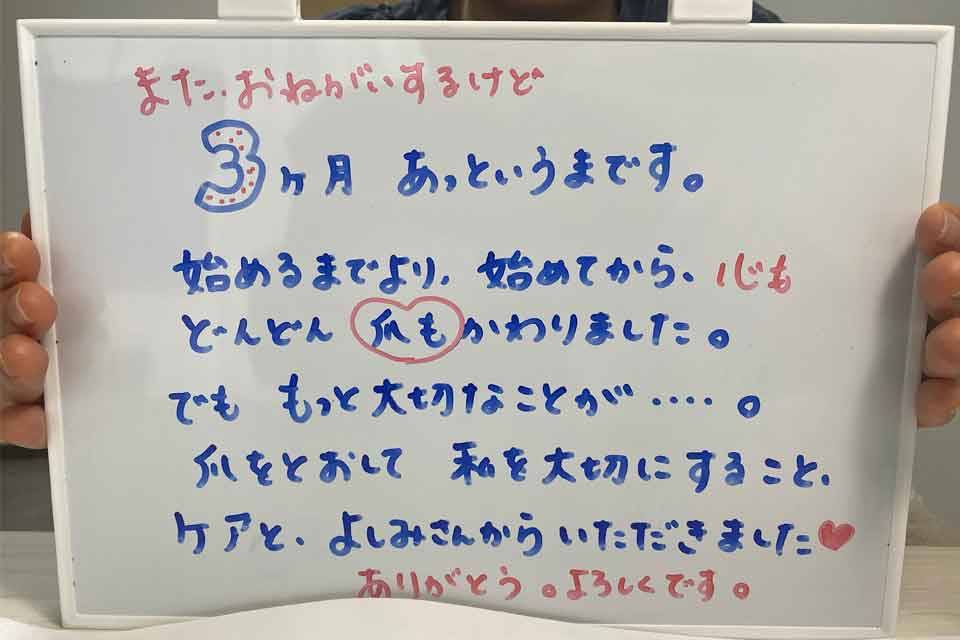 また、おねがいするけど
3ヶ月 あっというまです。
始めるまでより、始めてから、心も
どんどん 爪も かわりました。
でも もっと大切なことが‥‥。
爪をとおして 私を大切にすること、
ケアと、よしみさんからいただきました♥
ありがとう。よろしくです。